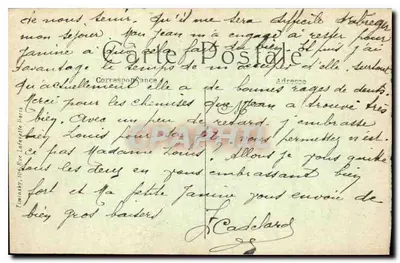 de nous servir. Qu'il me sera difficile d'abréger
mon séjour. Mon Jean m'a engagé à rester pour
Janine à qui cela fait du bien et puis j'ai
Carte Postale
davantage le temps de m'occuper d'elle. surtout
Correspondance
Adresse
qu'actuellement elle a de bonnes rages de dents.
Merci pour les chemises que Jean a trouvé très
bien. Avec un peu de retard, j'embrasse
bien Louis pour sa vous permettez n'est-
ce pas Madame Louis? Allons je vous quitte
tous les deux en vous embrassant bien
fort et Ma petite Janine vous envoie de
bien gros baisers
Rue Lafayette Paris